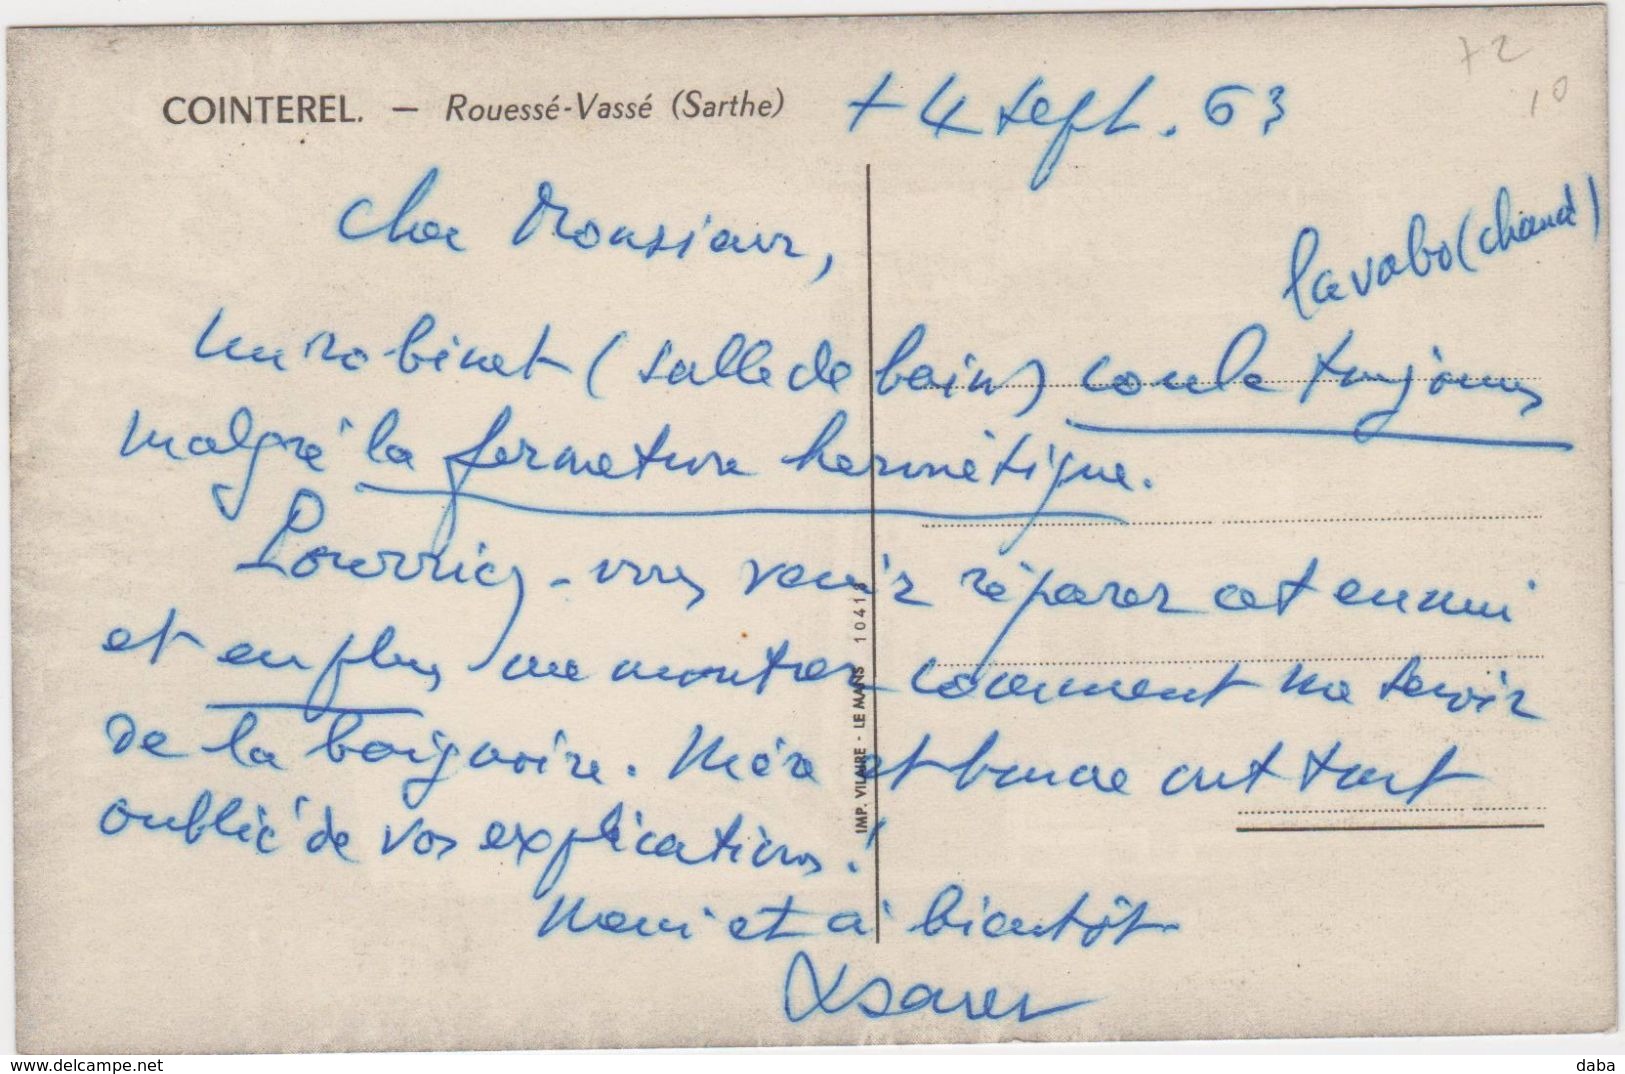 72
10
COINTEREL. — Rouessé-Vassé (Sarthe)
+ 4 sept. 63
Cher Monsieur,
lavabo (chaud)
Un robinet (salle de bains) coule toujours
malgré la fermeture hermétique.
Pourriez-vous venir réparer cet ennui
et en plus me montrer comment me servir
de la baignoire. Mère et bonne ont tout
oublié de vos explications !
Merci et à bientôt
IMP. VILAIRE - LE MANS 10413
www.delcampe.net
daba